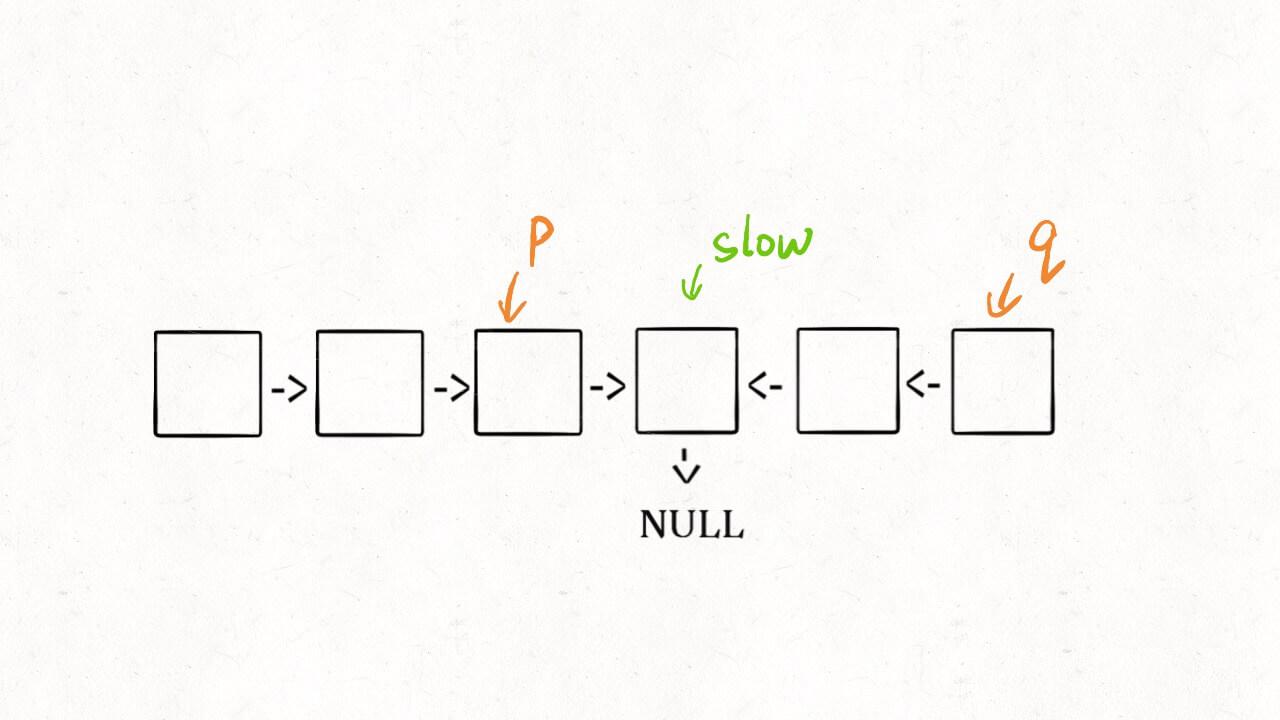 p
slow
q
-> -> -> <- <-
NULL